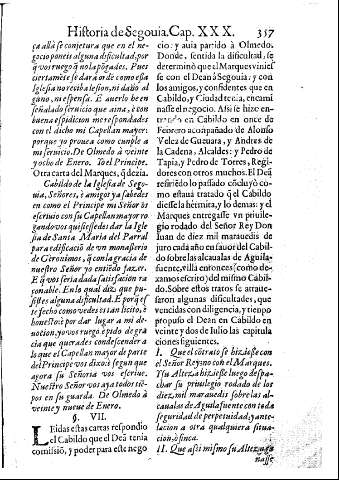 Historia de Segouia. Cap. XXX. 357
ça allà se conjetura que en el ne-
gocio poneis alguna dificultad, por
q̃ vos ruego q̃ no la põgades. Pues
ciertamẽte se darà orden como essa
Iglesia no reciba lesion, ni daño al-
guno, ni ofensa. E auerlo he en
señalado seruicio que aina, è con
buena espidicion me respondades
con el dicho mi Capellan mayor:
porque yo prouea como cumple a
mi seruicio. De Olmedo à veinte
y ocho de Enero. Yo el Principe.
Otra carta del Marques, q̃ dezia.
Cabildo de la Iglesia de Sego-
uia, Señores, è amigos ya sabedes
en como el Principe mi Señor os
escriuio con su Capellan mayor ro-
gandovos quisiessedes dar la Igle
sia de Santa Maria del Parral
para edificaciõ de vn monasterio
de Geronimos, que con la gracia de
nuestro Señor yo entiẽdo fazer.
E q̃ vos seria dada satisfacion ra-
zonable. En lo qual diz que pu-
sistes alguna dificultad. E porq̃ esse
fecho como vedes es tan licito, è
honesto: è por dar lugar a mi de-
uocion, yo vos ruego è pido de gra
cia que querades condescender a
lo que el Capellan mayor de parte
del Principe vos dixo: è segun que
agora su Señoria vos escriue.
Nuestro Señor vos aya todos tiẽ-
pos en su guarda. De Olmedo à
veinte y nueue de Enero.
§. VII.
Leidas estas cartas respondio
el Cabildo que el Deã tenia
comissiõ, y poder para este nego
cio: y auia partido à Olmedo.
Donde, sentida la dificultad, se
determinò que el Marques viniesse
se con el Dean à Segouia: y con
los amigos, y confidentes que en
Cabildo, y Ciudad tenia, encami
nasse el negocio. Assi se hizo: en-
trando en Cabildo en once de
Febrero acompañado de Alonso
Velez de Gueuara, y Andres de
la Cadena, Alcaldes: y Pedro de
Tapia, y Pedro de Torres, Regi-
dores con otros muchos. El Deã
refirió lo passado: cõcluyò co-
mo estauà tratado q̃ el Cabildo
diesse la hermita, y lo demas: y el
Marques entregasse vn priuile-
gio rodado del Señor Rey Don
Iuan de diez mil marauedis de
juro cada año en fauor del Cabil-
do sobre las alcaualas de Aguila-
fuente, villa entonces (como de-
zamos escrito) del mismo Cabil-
do. Sobre estos tratos se atraue-
saron algunas dificultades, que
vencidas con diligencia, y tiempo
propuso el Dean en Cabildo en
veinte y dos de Iulio las capitula
ciones siguientes.
I. Que el cõtrato se hiziesse con
el Señor Rey no con el Marques.
Y su Alteza hiziesse luego despa-
char su priuilegio rodado de los
diez mil marauedis sobre las al-
caualas de Aguilafuente con toda
seguridad de perpetuidad, y ante-
lacion a otra qualquiera situa-
cion, ò finca.
II. Que assi mismo su Alteza ga
nasse